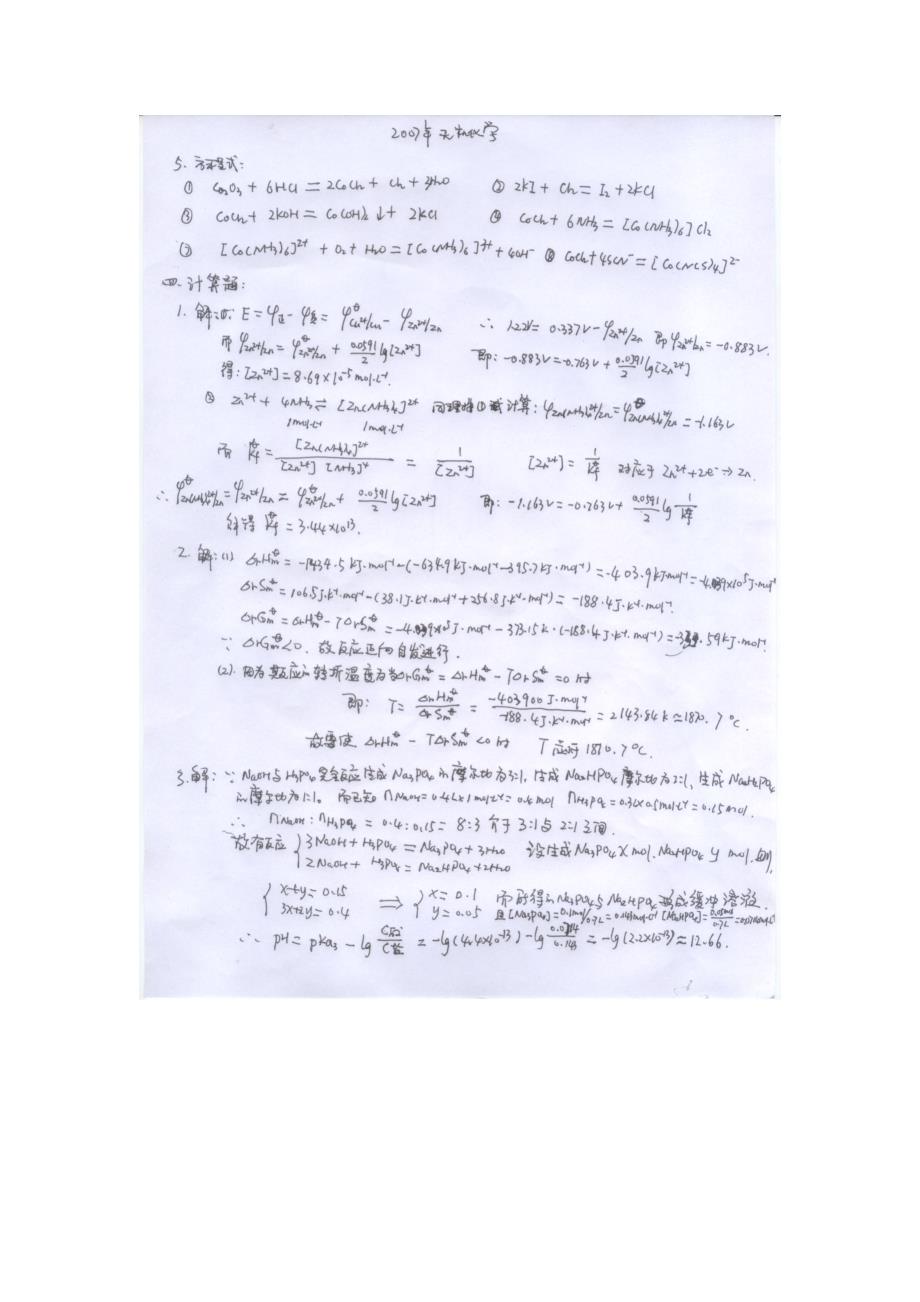 2007年无机化学
5. 方程式:
① Co2O3 + 6HCl = 2CoCl2 + Cl2 + 3H2O ② 2KI + Cl2 = I2 + 2KCl
③ CoCl2 + 2KOH = Co(OH)2↓ + 2KCl ④ CoCl2 + 6NH3 = [Co(NH3)6]Cl2
⑦ [Co(NH3)6]2+ + O2 + H2O = [Co(NH3)6]3+ + 4OH- ⑧ CoCl2 + 4SCN- = [Co(NCS)4]2-
四. 计算题:
1. 解: ①∵ E = φ正 - φ负 = φθCu2+/Cu - φZn2+/Zn ∴ 1.22V = 0.337V - φZn2+/Zn 即 φZn2+/Zn = -0.883V.
而 φZn2+/Zn = φθZn2+/Zn + 0.0591/2 lg[Zn2+] 即: -0.883V = -0.763V + 0.0591/2 lg[Zn2+]
得: [Zn2+] = 8.69×10-5 mol·L-1.
② Zn2+ + 4NH3 ⇌ [Zn(NH3)4]2+ 同理将①式计算: φZn(NH3)42+/Zn = φθZn(NH3)42+/Zn = -1.163V
1mol·L-1 1mol·L-1
而 Kθf = [Zn(NH3)4]2+ / [Zn2+][NH3]4 = 1/[Zn2+] [Zn2+] = 1/Kθf 对应于 Zn2+ + 2e- → Zn.
∴ φθZn(NH3)42+/Zn = φZn2+/Zn = φθZn2+/Zn + 0.0591/2 lg[Zn2+] 即: -1.163V = -0.763V + 0.0591/2 lg 1/Kθf
解得 Kθf = 3.44×1013.
2. 解: (1) ΔrHmθ = -1434.5 kJ·mol-1 - (-634.9 kJ·mol-1 - 395.7 kJ·mol-1) = -403.9 kJ·mol-1 = -4.039×105 J·mol-1
ΔrSmθ = 106.5 J·K-1·mol-1 - (38.1 J·K-1·mol-1 + 256.8 J·K-1·mol-1) = -188.4 J·K-1·mol-1.
ΔrGmθ = ΔrHmθ - TΔrSmθ = -4.039×105 J·mol-1 - 373.15K·(-188.4 J·K-1·mol-1) = .59 kJ·mol-1
∵ ΔrGmθ<0. 故反应正向自发进行.
(2). 因为其反应的转折温度为当ΔrGmθ = ΔrHmθ - TΔrSmθ = 0 时
即: T = ΔrHmθ/ΔrSmθ = -403900 J·mol-1 / -188.4 J·K-1·mol-1 = 2143.84 K ≈ 1870.7℃.
故要使 ΔrHmθ - TΔrSmθ <0 时 T 1870.7℃.
3. 解: ∵ NaOH与H3PO4完全反应生成Na3PO4的摩尔比为3:1, 生成Na2HPO4摩尔比为2:1, 生成NaH2PO4
的摩尔比为1:1。 而已知 nNaOH = 0.4L×1mol·L-1 = 0.4mol nH3PO4 = 0.3L×0.5mol·L-1 = 0.15mol.
∴ nNaOH : nH3PO4 = 0.4:0.15 = 8:3 介于3:1与2:1之间.
故有反应 { 3NaOH + H3PO4 = Na3PO4 + 3H2O 设生成Na3PO4 x mol. Na2HPO4 y mol. 则,
2NaOH + H3PO4 = Na2HPO4 + 2H2O
{ x+y = 0.15 ⟹ { x = 0.1 而所得的Na3PO4与Na2HPO4 成缓冲溶液.
3x+2y = 0.4 y = 0.05 且[Na3PO4] = 0.1mol/0.7L = 0.143mol·L-1 [Na2HPO4] = 0.05mol/0.7L
∴ pH = pKa3 - lg C酸/C盐 = -lg(4.4×10-13) - lg 0.0714/0.143 = -lg(2.2×10-13) ≈ 12.66.